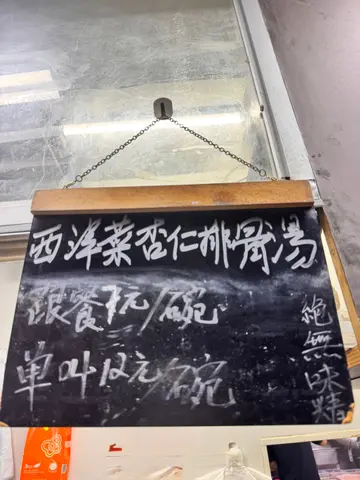 西洋菜杏仁排骨湯
跟餐7元/碗
单叫12元/碗
絕無味精